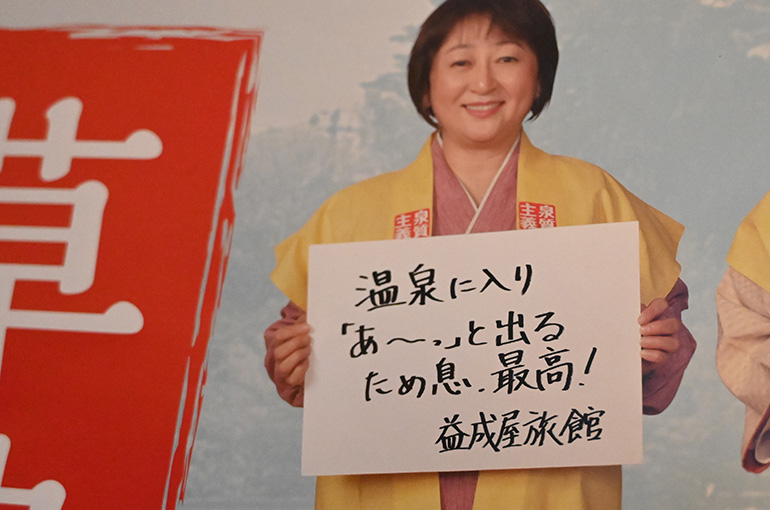 草
泉質
主義
泉質
主義
温泉に入り
「あ〜っ」と出る
ため息、最高!
益成屋旅館